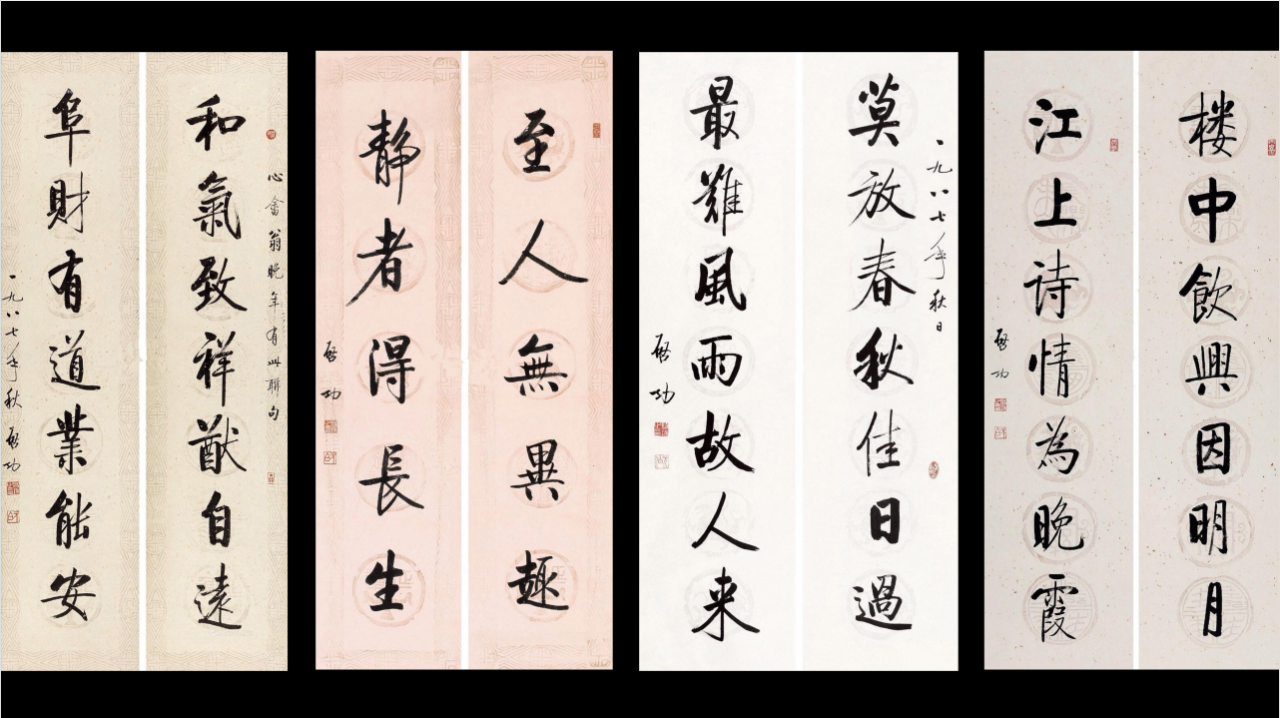 楼中飲興因明月
江上诗情為晚霞
启功
一九八七年秋日
莫放春秋佳日過
最難風雨故人来
启功
至人無異趣
静者得長生
启功
心畬翁晚年有此聯句
和氣致祥猷自遠
阜財有道業能安
一九八七年秋启功